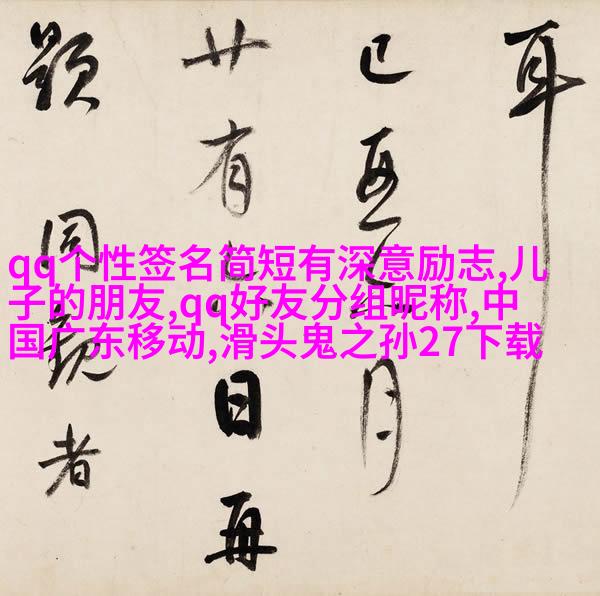 耳
已月
廿有日再
題同觀者
qq个性签名简短有深意励志,儿
子的朋友,qq好友分组昵称,中
国广东移动,滑头鬼之孙27下载